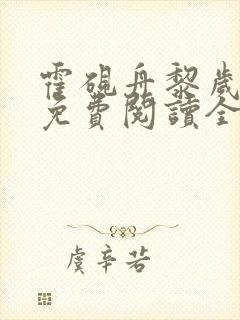 霍硯舟黎歲
免費閱讀全
虞辛若